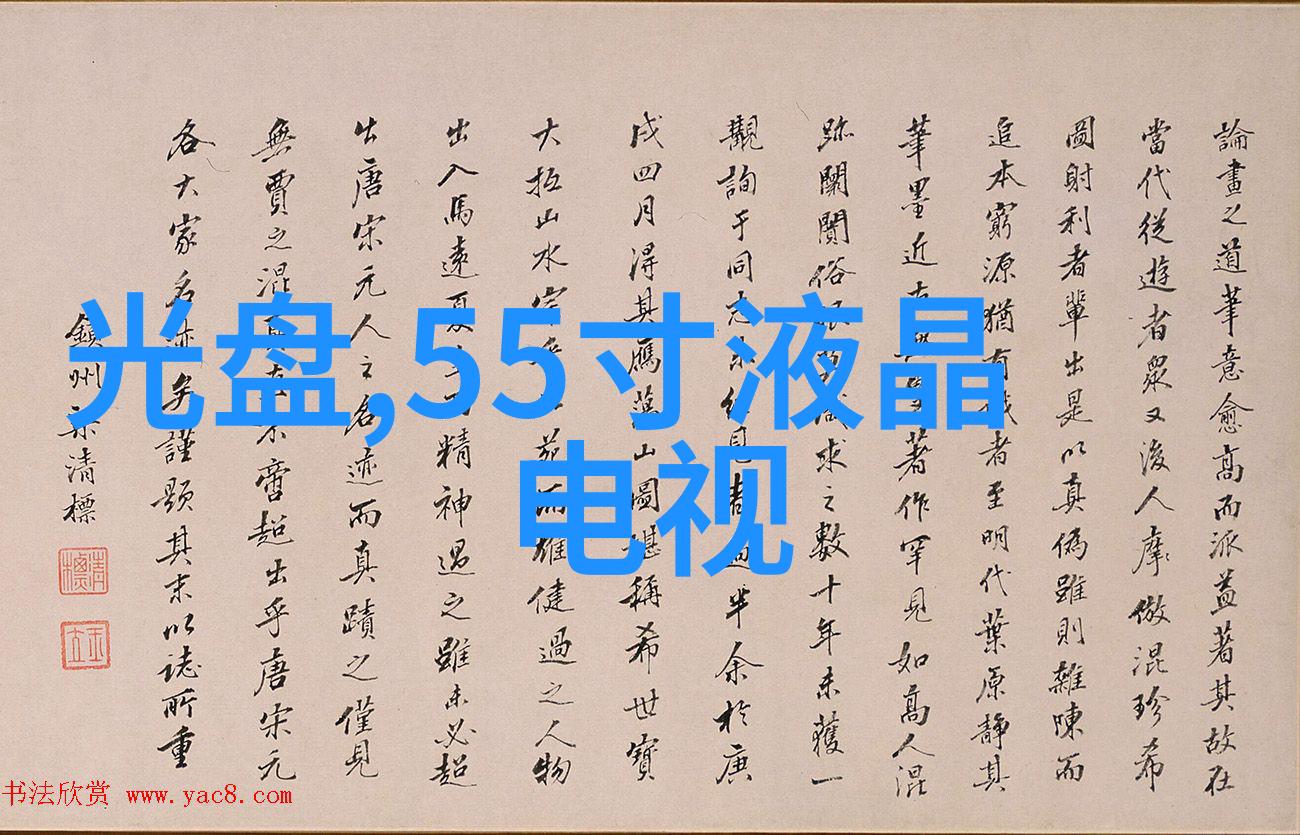 論畫之道筆意愈高而派益著其故在
當代從遊者眾又後人摩倣混珍希
圖射利者輩出是以真偽雖則雜陳而
追本窮源猶有識者至明代葉原靜其
筆墨近著作罕見如高人混
跡闤闠俗求之數十年未獲一
觀詢于同過半余於庚
戌四月得其雁蕩山圖堪稱希世寶
大抵山水而雄健過之人物
出入馬遠夏精神過之雖未必超
出唐宋元人之名迹而真蹟之僅見
無賈之混嘗超出乎唐宋元
各大家名迹矣謹題其末以誌所重
鎮州梁清標
清標
光盘,55寸液晶
电视
书法欣赏 www.yac8.com